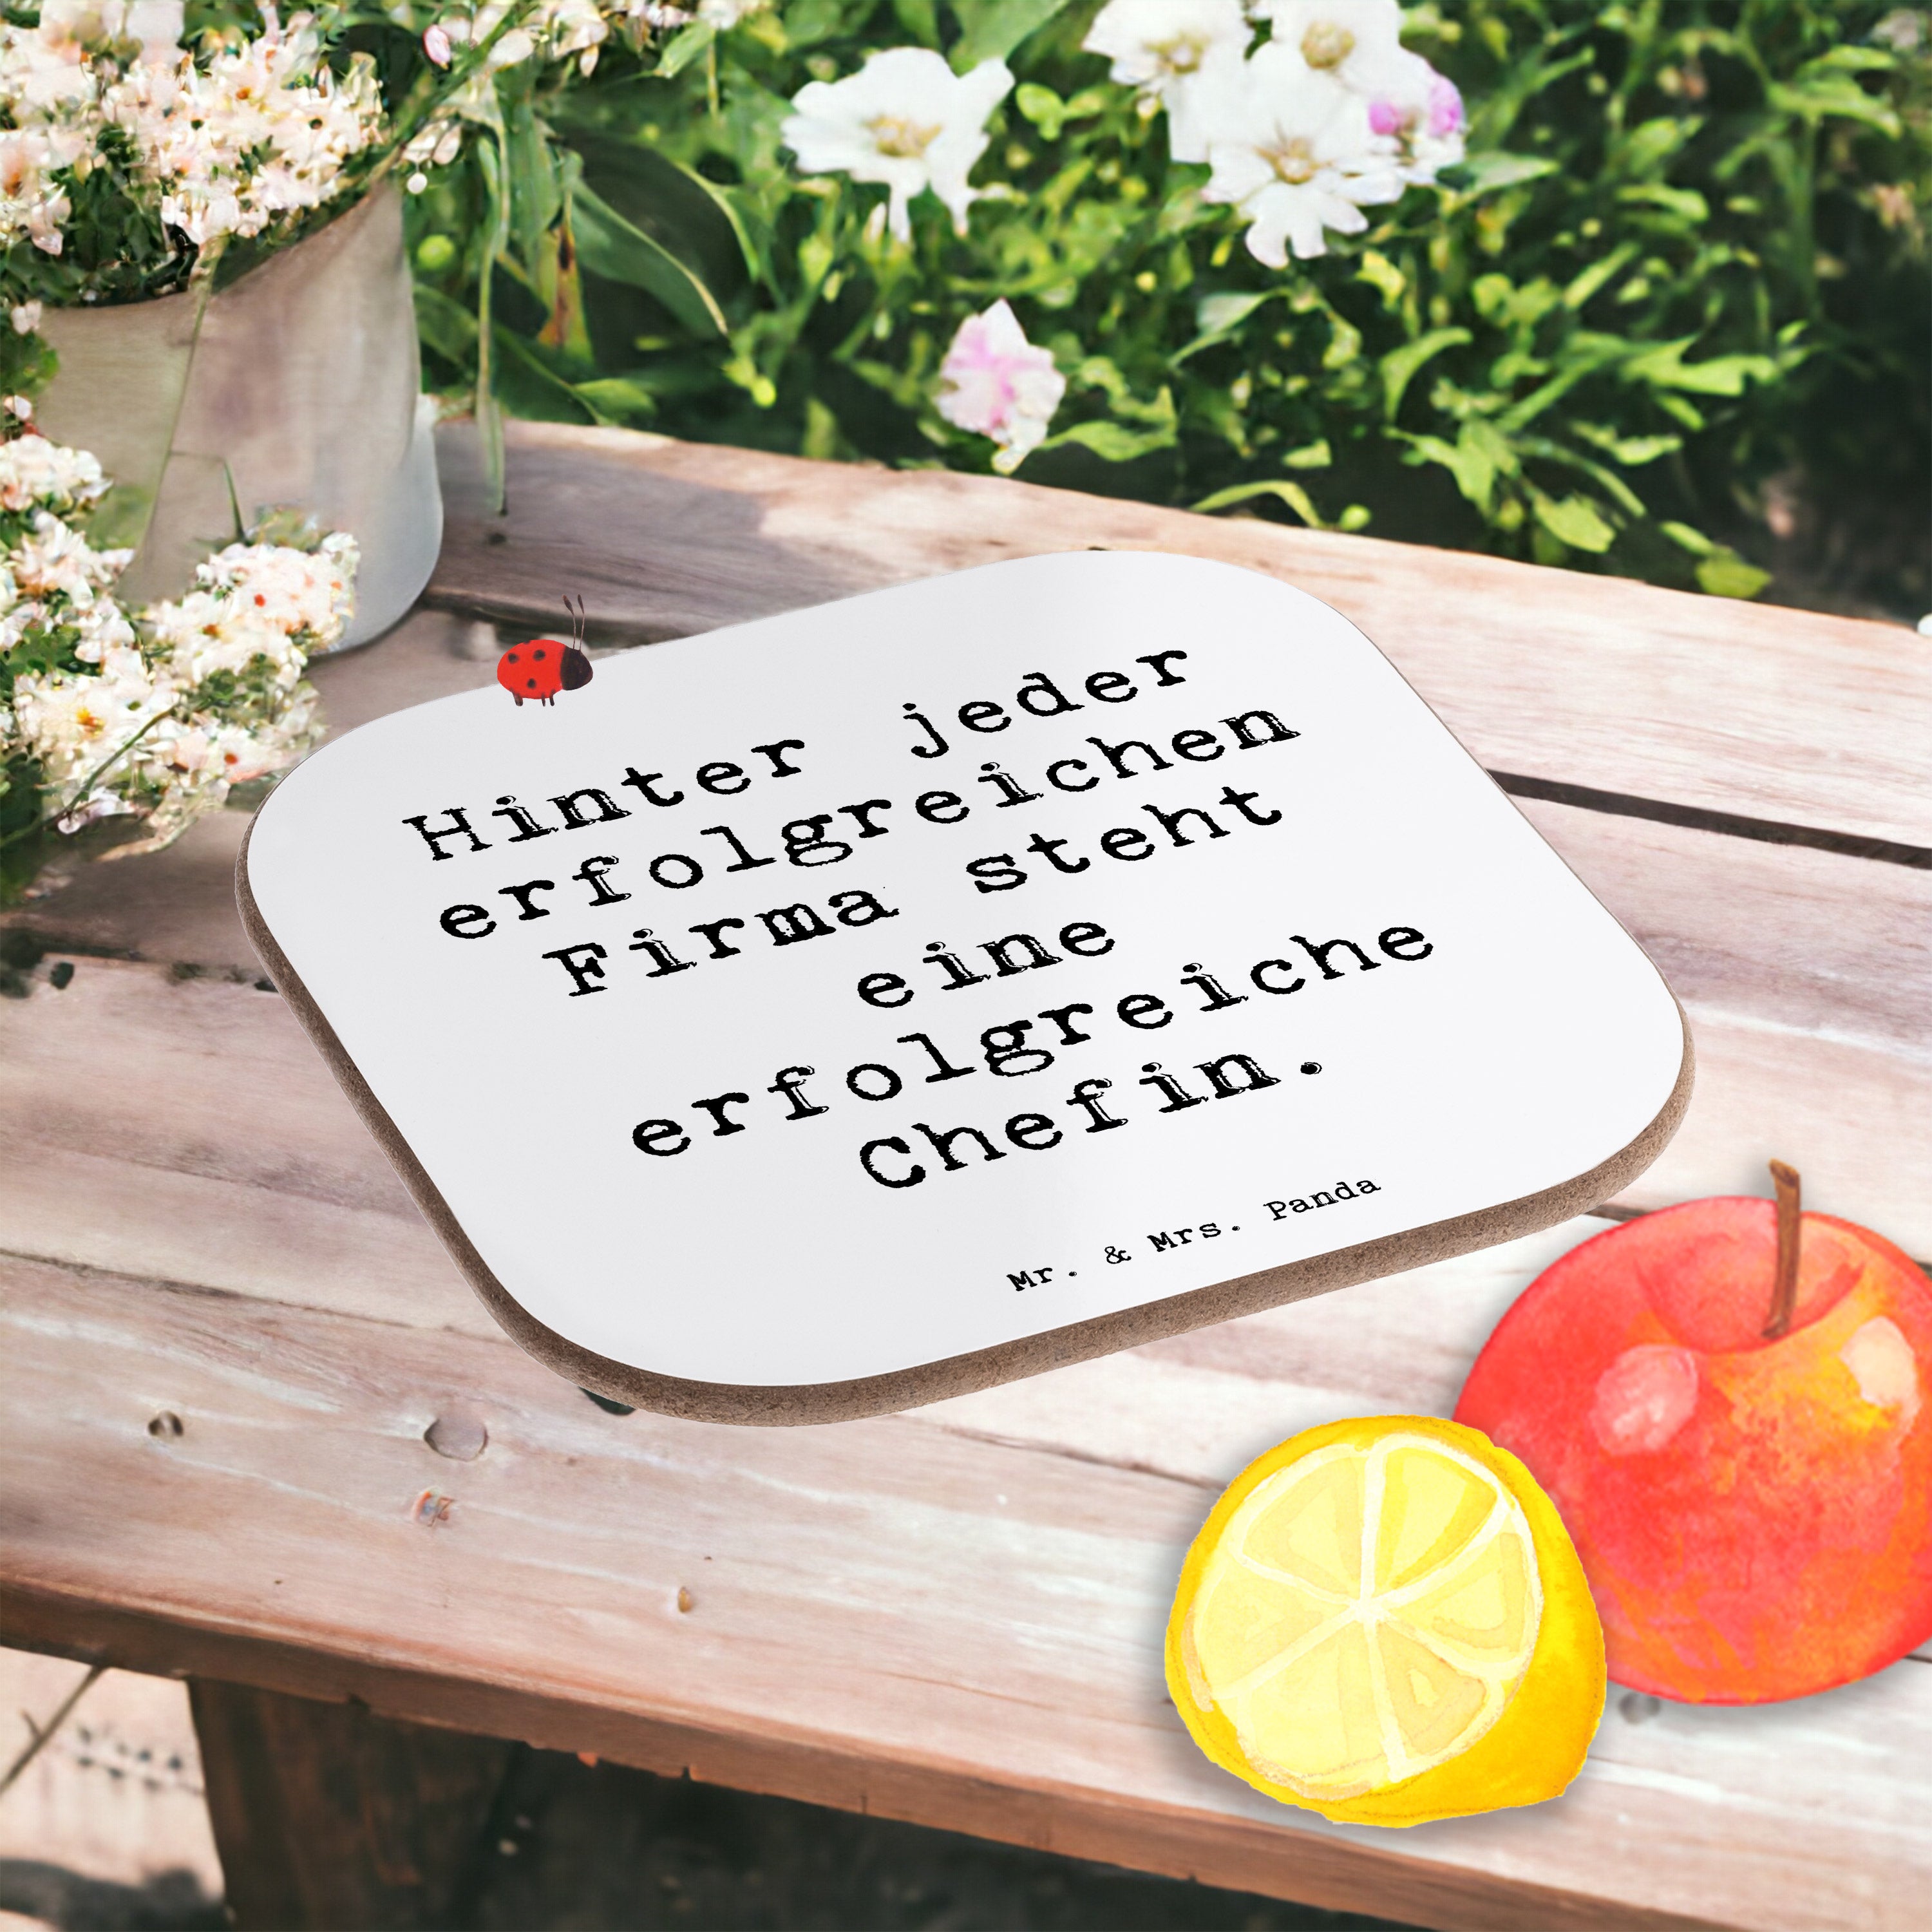 Hinter jeder
erfolgreichen
Firma steht
eine
erfolgreiche
Chefin.
Mr. & Mrs. Panda